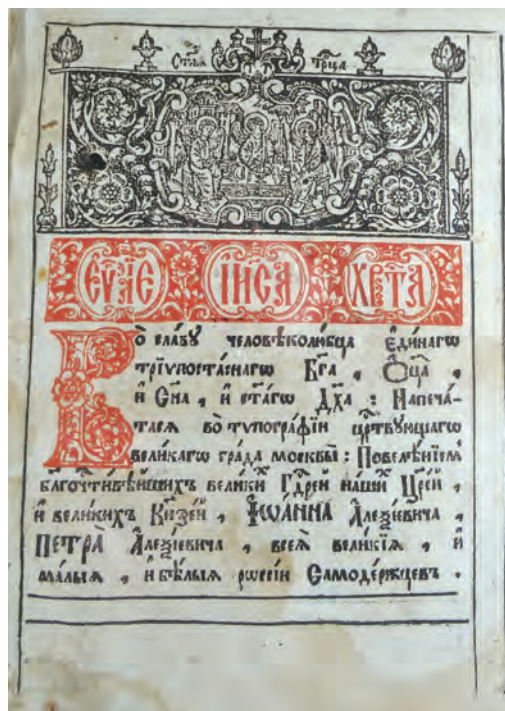 Ст҃аѧ Трⷪ҇ца
ЕѴ҃ЛІЕ ІИ҃СА ХР҇ТА
Во̀ сла́вꙋ человѣколю́бца є҆ди́нагѡ
трїѵпоста́снагѡ Бг҃а , Ѻ҆ц҃а̀ ,
и҆ Сн҃а , и҆ ст҃а́гѡ Дх҃а : Напеча́-
тасѧ во̀ тѵпогра́фїи ца҃рствꙋющагѡ
вели́кагѡ гра́да москвы̀ : Повелѣ́нїемъ
бл҃гочⷭ҇ти́вѣйшихъ вели́кихъ Гдⷭ҇рей на́шихъ Цр҃е́й ,
и҆ вели́кихъ Кн҃зе́й , ІѠА́ННА А҆леѯі́евича ,
ПЕТРА̀ А҆леѯі́евича , всеѧ̀ вели́кїѧ , и҆
ма́лыѧ , и҆ бѣ́лыѧ рѡссі́и Самоде́ржцевъ .